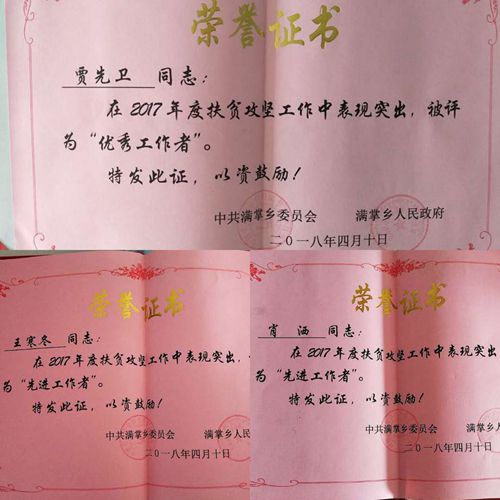 荣誉证书
贾先卫 同志：
在2017年度扶贫攻坚工作中表现突出，被评
为“优秀工作者”。
特发此证，以资鼓励！
中共满掌乡委员会 满掌乡人民政府
二〇一八年四月十日
荣誉证书
王寒冬 同志：
在2017年度扶贫攻坚工作中表现突出，
为“先进工作者”。
特发此证，以资鼓励！
中共满掌乡委员会 满掌乡人民
二〇一八年四月十日
荣誉证书
肖 洒 同志：
在2017年度扶贫攻坚工作中表现
为“先进工作者”。
特发此证，以资鼓励！
中共满掌乡委员会 满掌乡
二〇一八年四月十